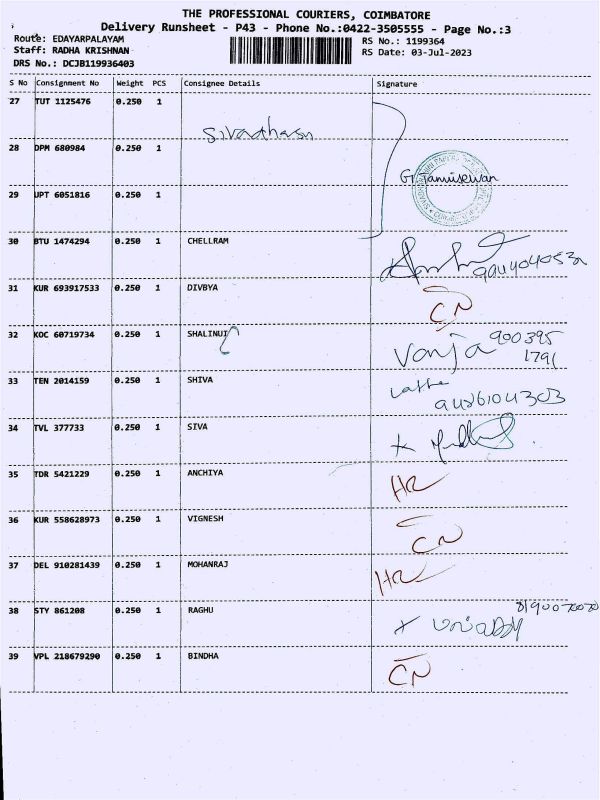 THE PROFESSIONAL COURIERS, COIMBATORE
Delivery Runsheet - P43 - Phone No.:0422-3505555 - Page No.:3
Route: EDAYARPALAYAM
RS No.: 1199364
Staff: RADHA KRISHNAN
RS Date: 03-Jul-2023
DRS No.: DCJB119936403
S No Consignment No Weight PCS Consignee Details Signature
27 TUT 1125476 0.250 1
28 DPM 680984 0.250 1
29 UPT 6051816 0.250 1
30 BTU 1474294 0.250 1 CHELLRAM
31 KUR 693917533 0.250 1 DIVBYA
CN
32 KOC 60719734 0.250 1 SHALINUI
900395
1791
33 TEN 2014159 0.250 1 SHIVA
34 TVL 377733 0.250 1 SIVA
35 TDR 5421229 0.250 1 ANCHIYA
36 KUR 558628973 0.250 1 VIGNESH
CN
37 DEL 910281439 0.250 1 MOHANRAJ
38 STY 861208 0.250 1 RAGHU
39 VPL 218679290 0.250 1 BINDHA
CN